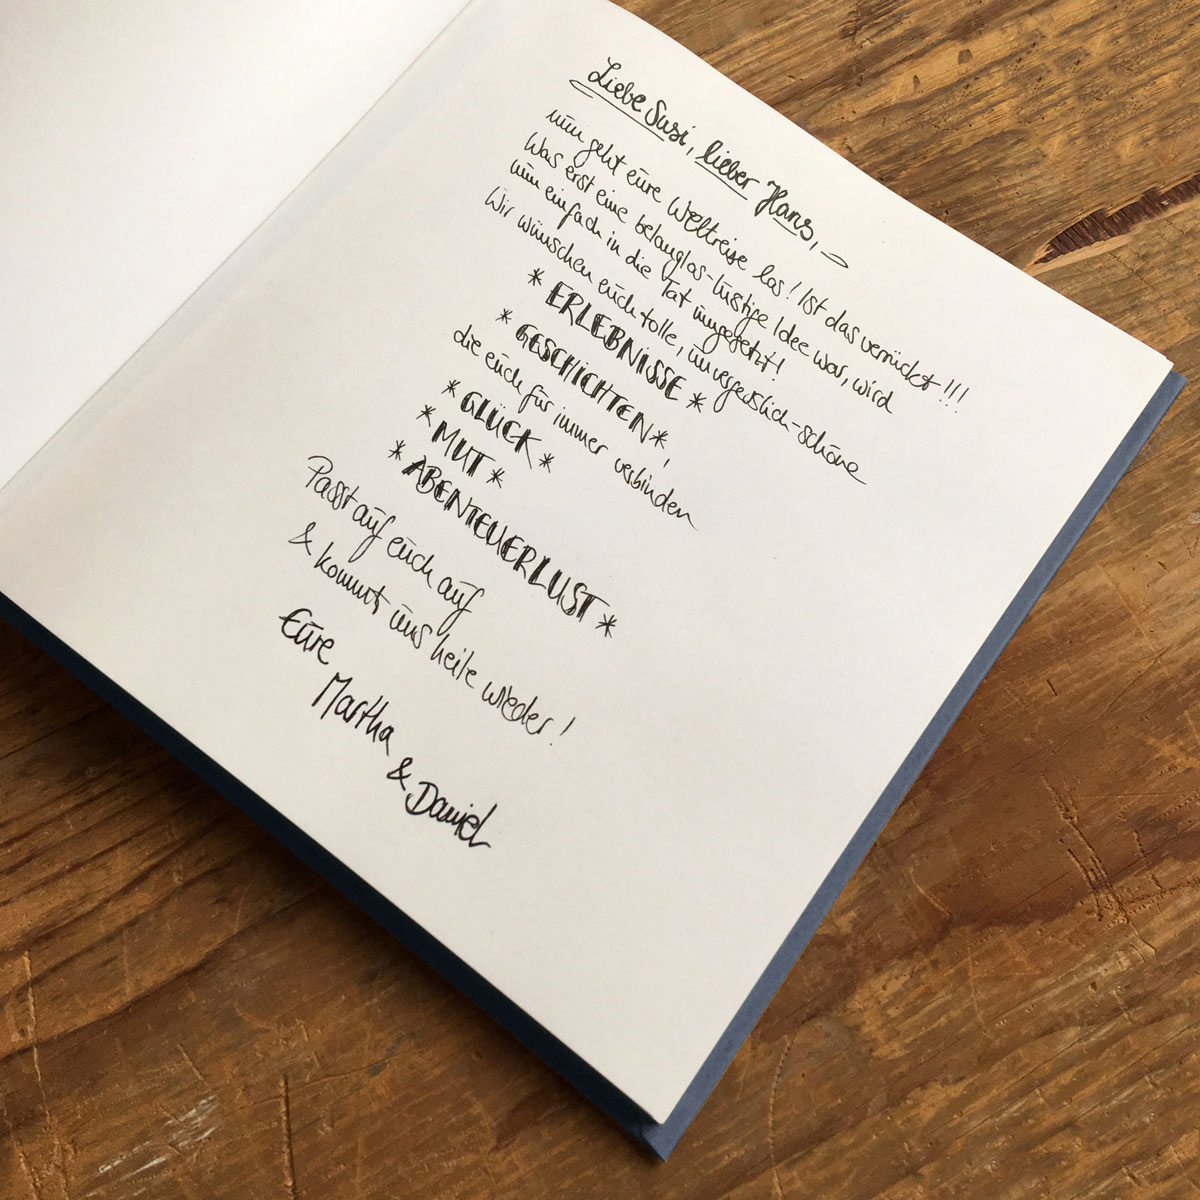 Liebe Susi, lieber Hans,
nun geht eure Weltreise los! Ist das verrückt!!!
Was erst eine belanglos-lustige Idee war, wird
nun einfach in die Tat umgesetzt!
Wir wünschen euch tolle, unvergesslich-schöne
* ERLEBNISSE *
* GESCHICHTEN *,
die euch für immer verbinden
* GLÜCK *
* MUT *
* ABENTEUERLUST *
Passt auf euch auf
& kommt uns heile wieder!
Eure
Martha
& Daniel